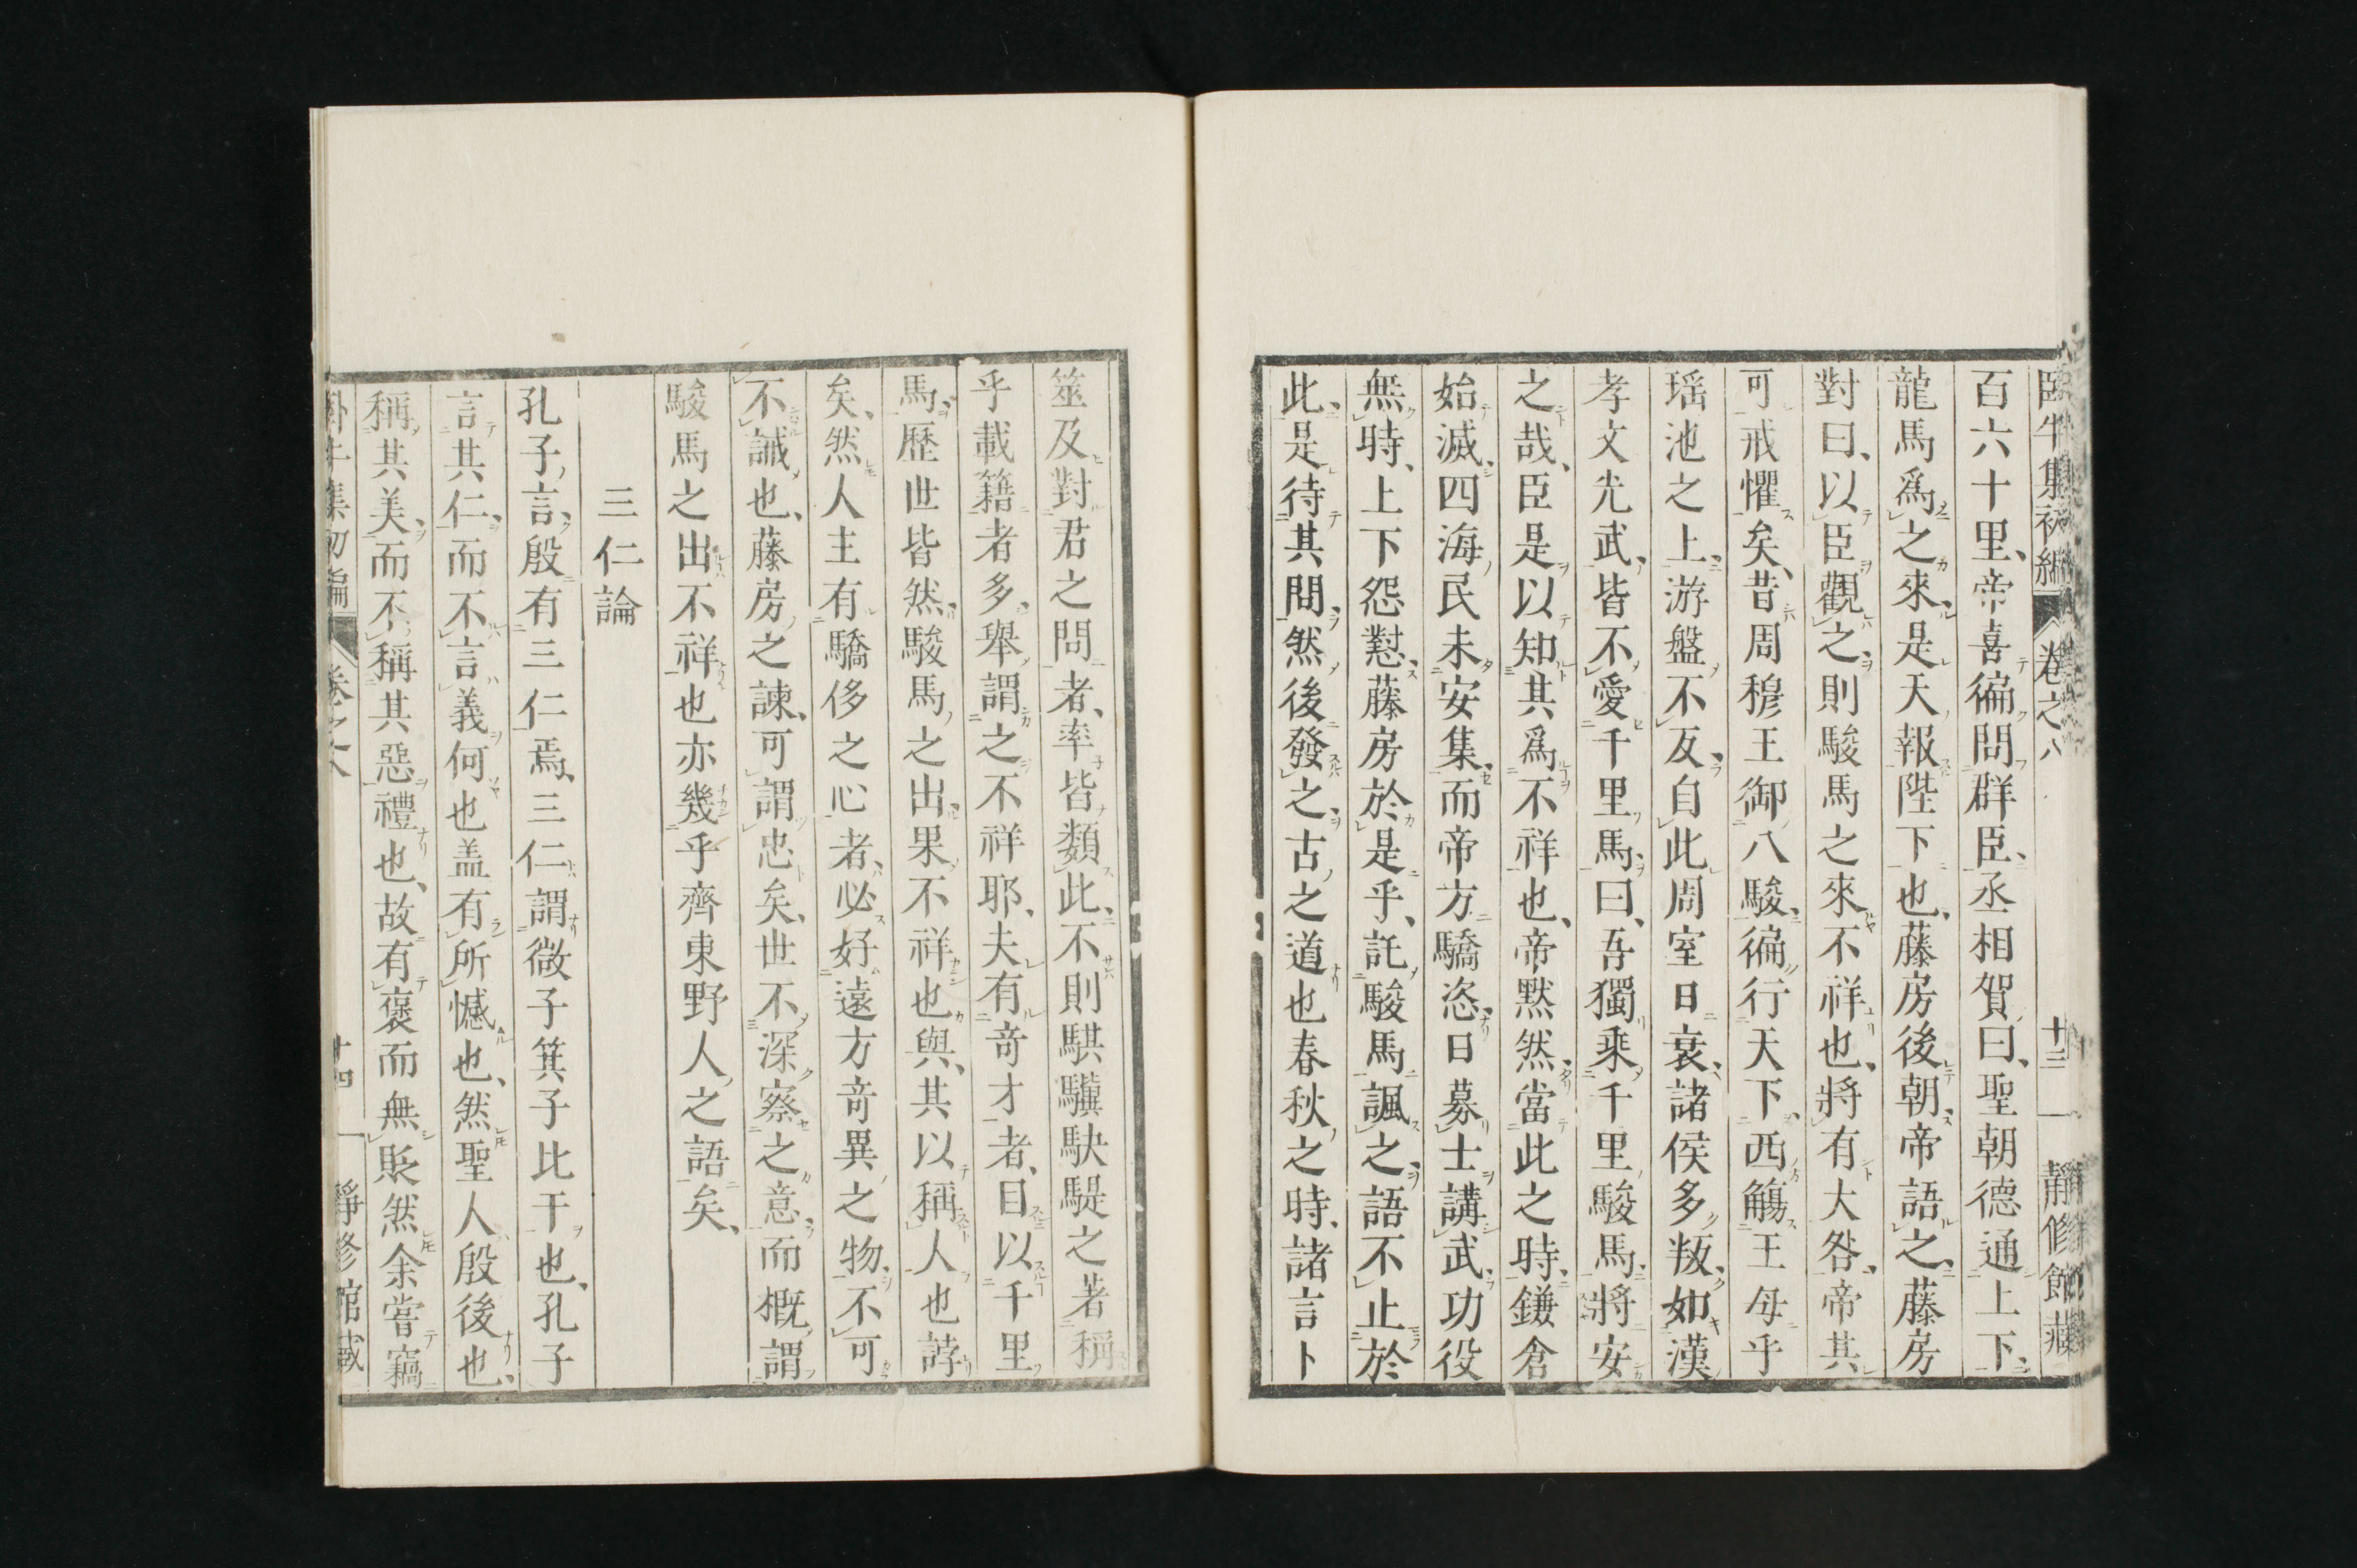 臥牛集初編 卷之八 十三 靜修館藏
百六十里、帝喜徧問群臣、丞相賀曰、聖朝德通上下、
龍馬爲之來、是天報陛下也、藤房後朝、帝語之、藤房
對曰、以臣觀之、則駿馬之來不祥也、將有大咎、帝其
可戒懼矣、昔周穆王御八駿、徧行天下、西觴王母乎
瑶池之上、游盤不反、自此周室日衰、諸侯多叛、如漢
孝文光武、皆不愛千里馬、曰、吾獨乘千里駿馬、將安
之哉、臣是以知其爲不祥也、帝默然、當此之時、鎌倉
始滅、四海民未安集、而帝方驕恣、日募士講武、功役
無時、上下怨懟、藤房於是乎、託駿馬諷之、語不止於
此、是待其問、然後發之、古之道也春秋之時、諸言卜
筮及對君之問者、率皆類此、不則騏驥駃騠之著稱
乎載籍者多、舉謂之不祥耶、夫有奇才者、目以千里
馬、歷世皆然、駿馬之出、果不祥也與、其以稱人也誖
矣、然人主有驕侈之心者、必好遠方奇異之物、不可
不誡也、藤房之諫、可謂忠矣、世不深察之意、而概謂
駿馬之出不祥也亦幾乎齊東野人之語矣、
三仁論
孔子言、殷有三仁焉、三仁謂微子箕子比干也、孔子
言其仁、而不言義何也盖有所憾也、然聖人殷後也、
稱其美、而不稱其惡禮也、故有褒而無貶然余嘗竊
卷之八 十四 靜修館藏